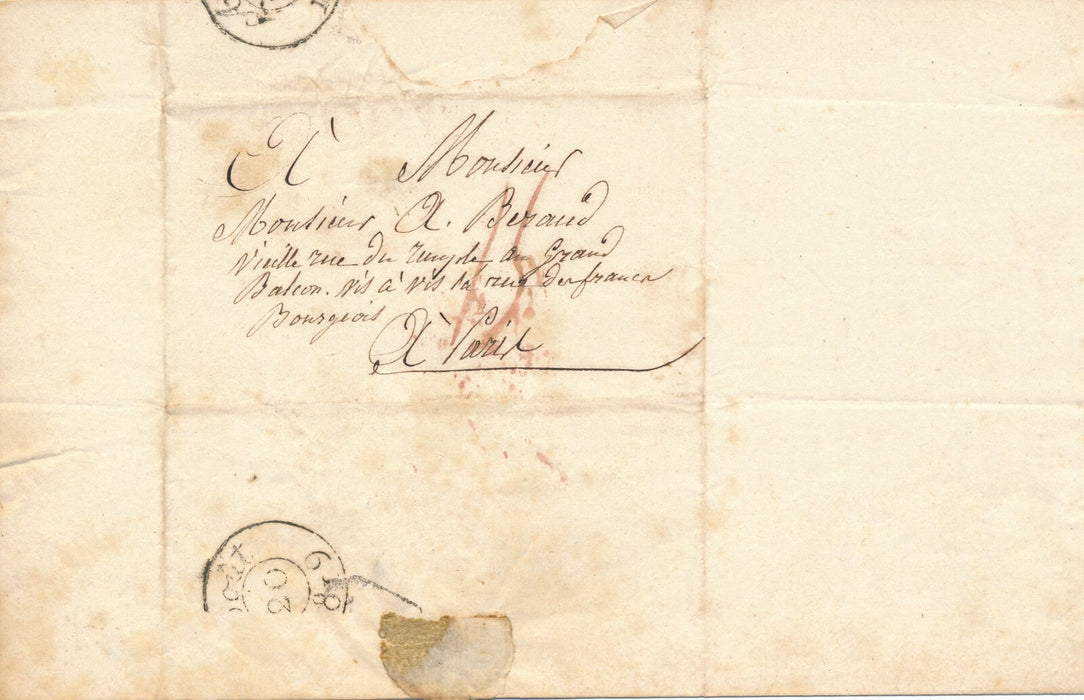 À Monsieur
Monsieur A. Beraud
Vieille rue du temple au Grand
Balcon. vis à vis la rue des francs
Bourgeois
À Paris